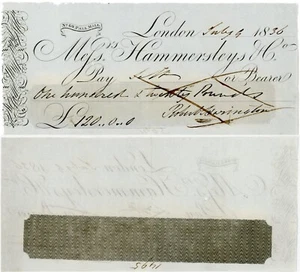 No. 69 PALL MALL
London July 4 1836
Messrs Hammersleys & Co.
Pay Self or Bearer
One hundred & twenty Pounds
£120.0.0